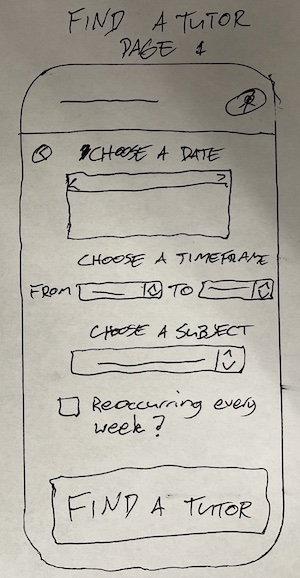 FIND A TUTOR
PAGE 1
CHOOSE A DATE
CHOOSE A TIMEFRAME
FROM TO
CHOOSE A SUBJECT
Reoccurring every
week?
FIND A TUTOR